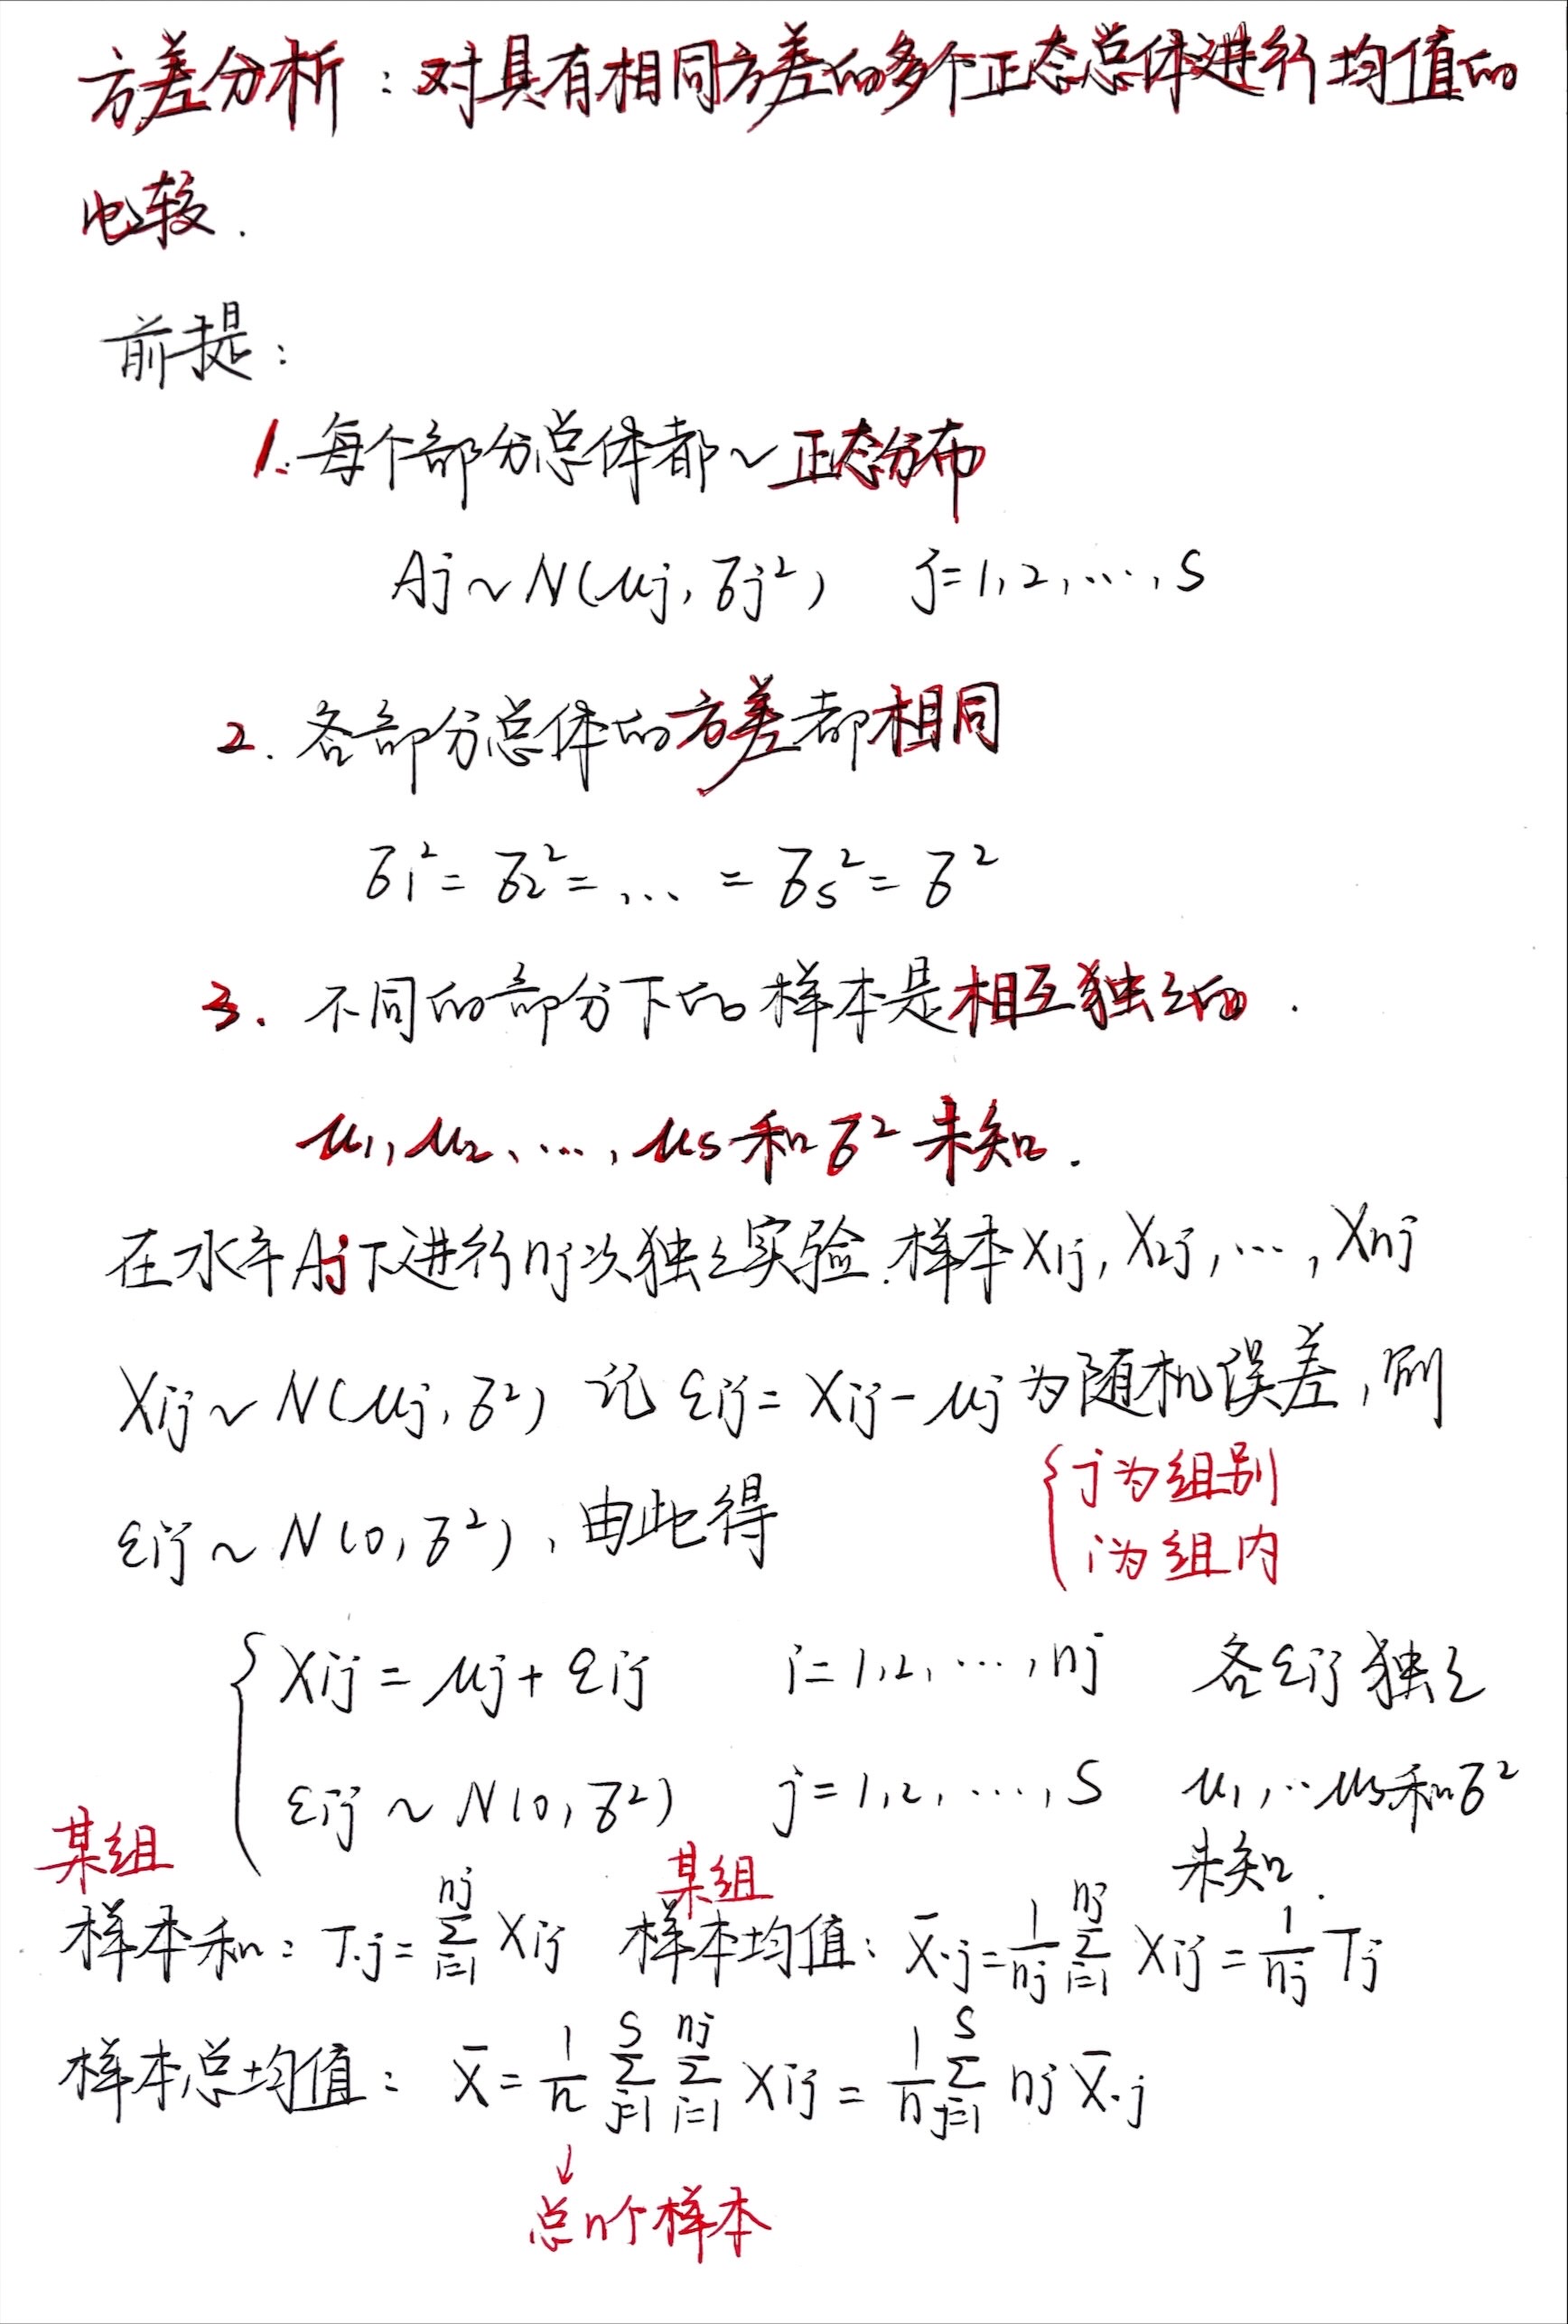 方差分析：对具有相同方差的多个正态总体进行均值的
比较.
前提：
1. 每个部分总体都～正态分布
Aj ~ N(μj, σj²)  j=1,2,…,s
2. 各部分总体的方差都相同
σ1² = σ2² = … = σs² = σ²
3. 不同的部分下的样本是相互独立的.
μ1, μ2, …, μs 和 σ² 未知.
在水平Aj下进行nj次独立实验.样本X1j, X2j, …, Xnj
Xij ~ N(μj, σ²) 记 εij = Xij - μj 为随机误差,则
j为组别
εij ~ N(0, σ²), 由此得
i为组内
Xij = μj + εij  i=1,2,…,nj  各εij独立
εij ~ N(0, σ²)  j=1,2,…,s  μ1,…μs和σ²
未知.
某组 某组
样本和：T.j = Σ(i=1..nj) Xij 样本均值：X̄.j = 1/nj Σ(i=1..nj) Xij = 1/nj Tj
样本总均值：X̄ = 1/n Σ(j=1..s) Σ(i=1..nj) Xij = 1/n Σ(j=1..s) nj X̄.j
↓
总n个样本